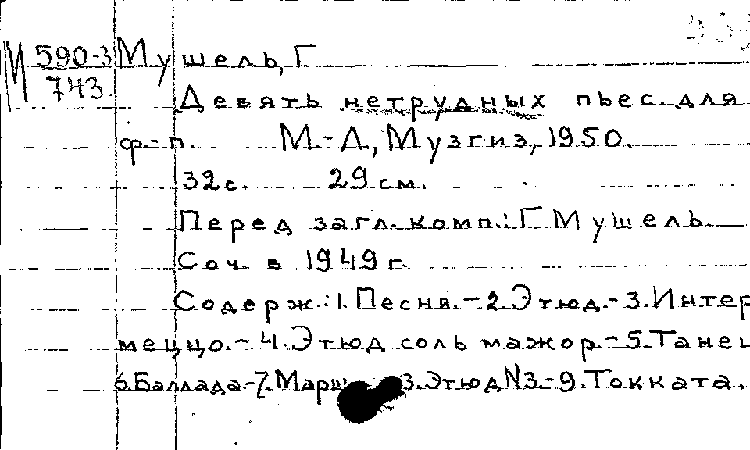 М 590-3 Мушель, Г
743
Девять нетрудных пьес для
ф-п. М.-Л., Музгиз, 1950.
32 с. 29 см.
Перед загл. комп.: Г Мушель.
Соч. в 1949 г.
Содерж.: 1. Песня. – 2. Этюд. – 3. Интер
меццо. – 4. Этюд соль мажор. – 5. Танец
6. Баллада – 7. Марш 8. Этюд N3. – 9. Токката.